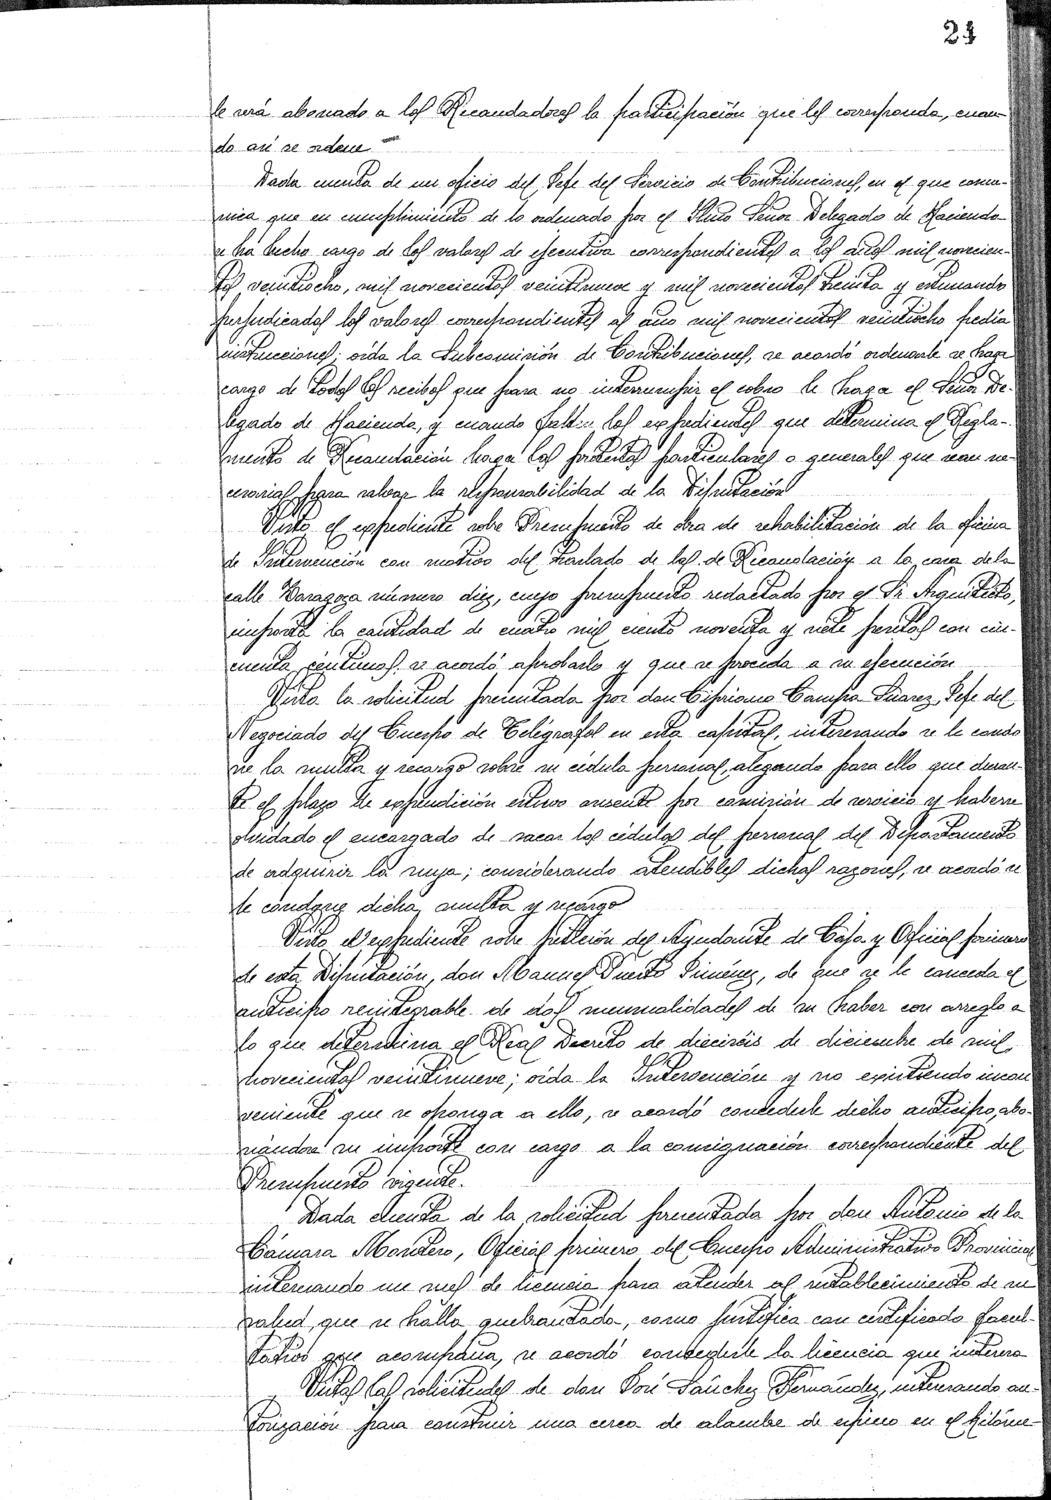 24
le será abonado a los Recaudadores la participación que les corresponda, cuan-
do así se ordene
Dada cuenta de un oficio del Jefe del Servicio de Contribuciones, en el que comu-
nica que en cumplimiento de lo ordenado por el Iltmo Señor Delegado de Hacienda
se ha hecho cargo de los valores de ejecutiva correspondientes a los años mil novecien-
tos veintiocho, mil novecientos veintinueve y mil novecientos treinta y estimando
perjudicados los valores correspondientes al año mil novecientos veintiocho pedía
instrucciones; oída la Subcomisión de Contribuciones, se acordó ordenarle se haga
cargo de todos los recibos que para no interrumpir el cobro le haga el Señor De-
legado de Hacienda, y cuando falten los expedientes que determina el Regla-
mento de Recaudación haga las protestas particulares o generales que sean ne-
cesarias para salvar la responsabilidad de la Diputación
Visto el expediente sobre Presupuesto de obra de rehabilitación de la oficina
de Intervención con motivo del traslado de las de Recaudación a la casa de la
calle Zaragoza número diez, cuyo presupuesto redactado por el Sr Arquitecto,
importa la cantidad de cuatro mil ciento noventa y siete pesetas con cin-
cuenta céntimos, se acordó aprobarlo y que se proceda a su ejecución
Vista la solicitud presentada por don Cipriano Campa Suarez, Jefe del
Negociado del Cuerpo de Telégrafos en esta capital, interesando se le condo
ne la multa y recargo sobre su cédula personal, alegando para ello que duran-
te el plazo de expendición estuvo ausente por comisión de servicio y haberse
olvidado el encargado de sacar las cédulas del personal del Departamento
de adquirir la suya; considerando atendibles dichas razones, se acordó se
le condone dicha multa y recargo
Visto el expediente sobre petición del Ayudante de Caja y Oficial primero
de esta Diputación, don Manuel Puerto Jiménez, de que se le conceda el
anticipo reintegrable de dos mensualidades de su haber con arreglo a
lo que determina el Real Decreto de dieciséis de diciembre de mil
novecientos veintinueve; oída la Intervención y no existiendo incon
veniente que se oponga a ello, se acordó concederle dicho anticipo, abo-
nándose su importe con cargo a la consignación correspondiente del
Presupuesto vigente.
Dada cuenta de la solicitud presentada por don Antonio de la
Cámara Montero, Oficial primero del Cuerpo Administrativo Provincial
interesando un mes de licencia para atender al restablecimiento de su
salud, que se halla quebrantada, como justifica con certificado facul-
tativo que acompaña, se acordó concederle la licencia que interesa
Vistas las solicitudes de don José Sánchez Fernández, interesando au-
torización para construir una cerca de alambre de espino en el kilóme-